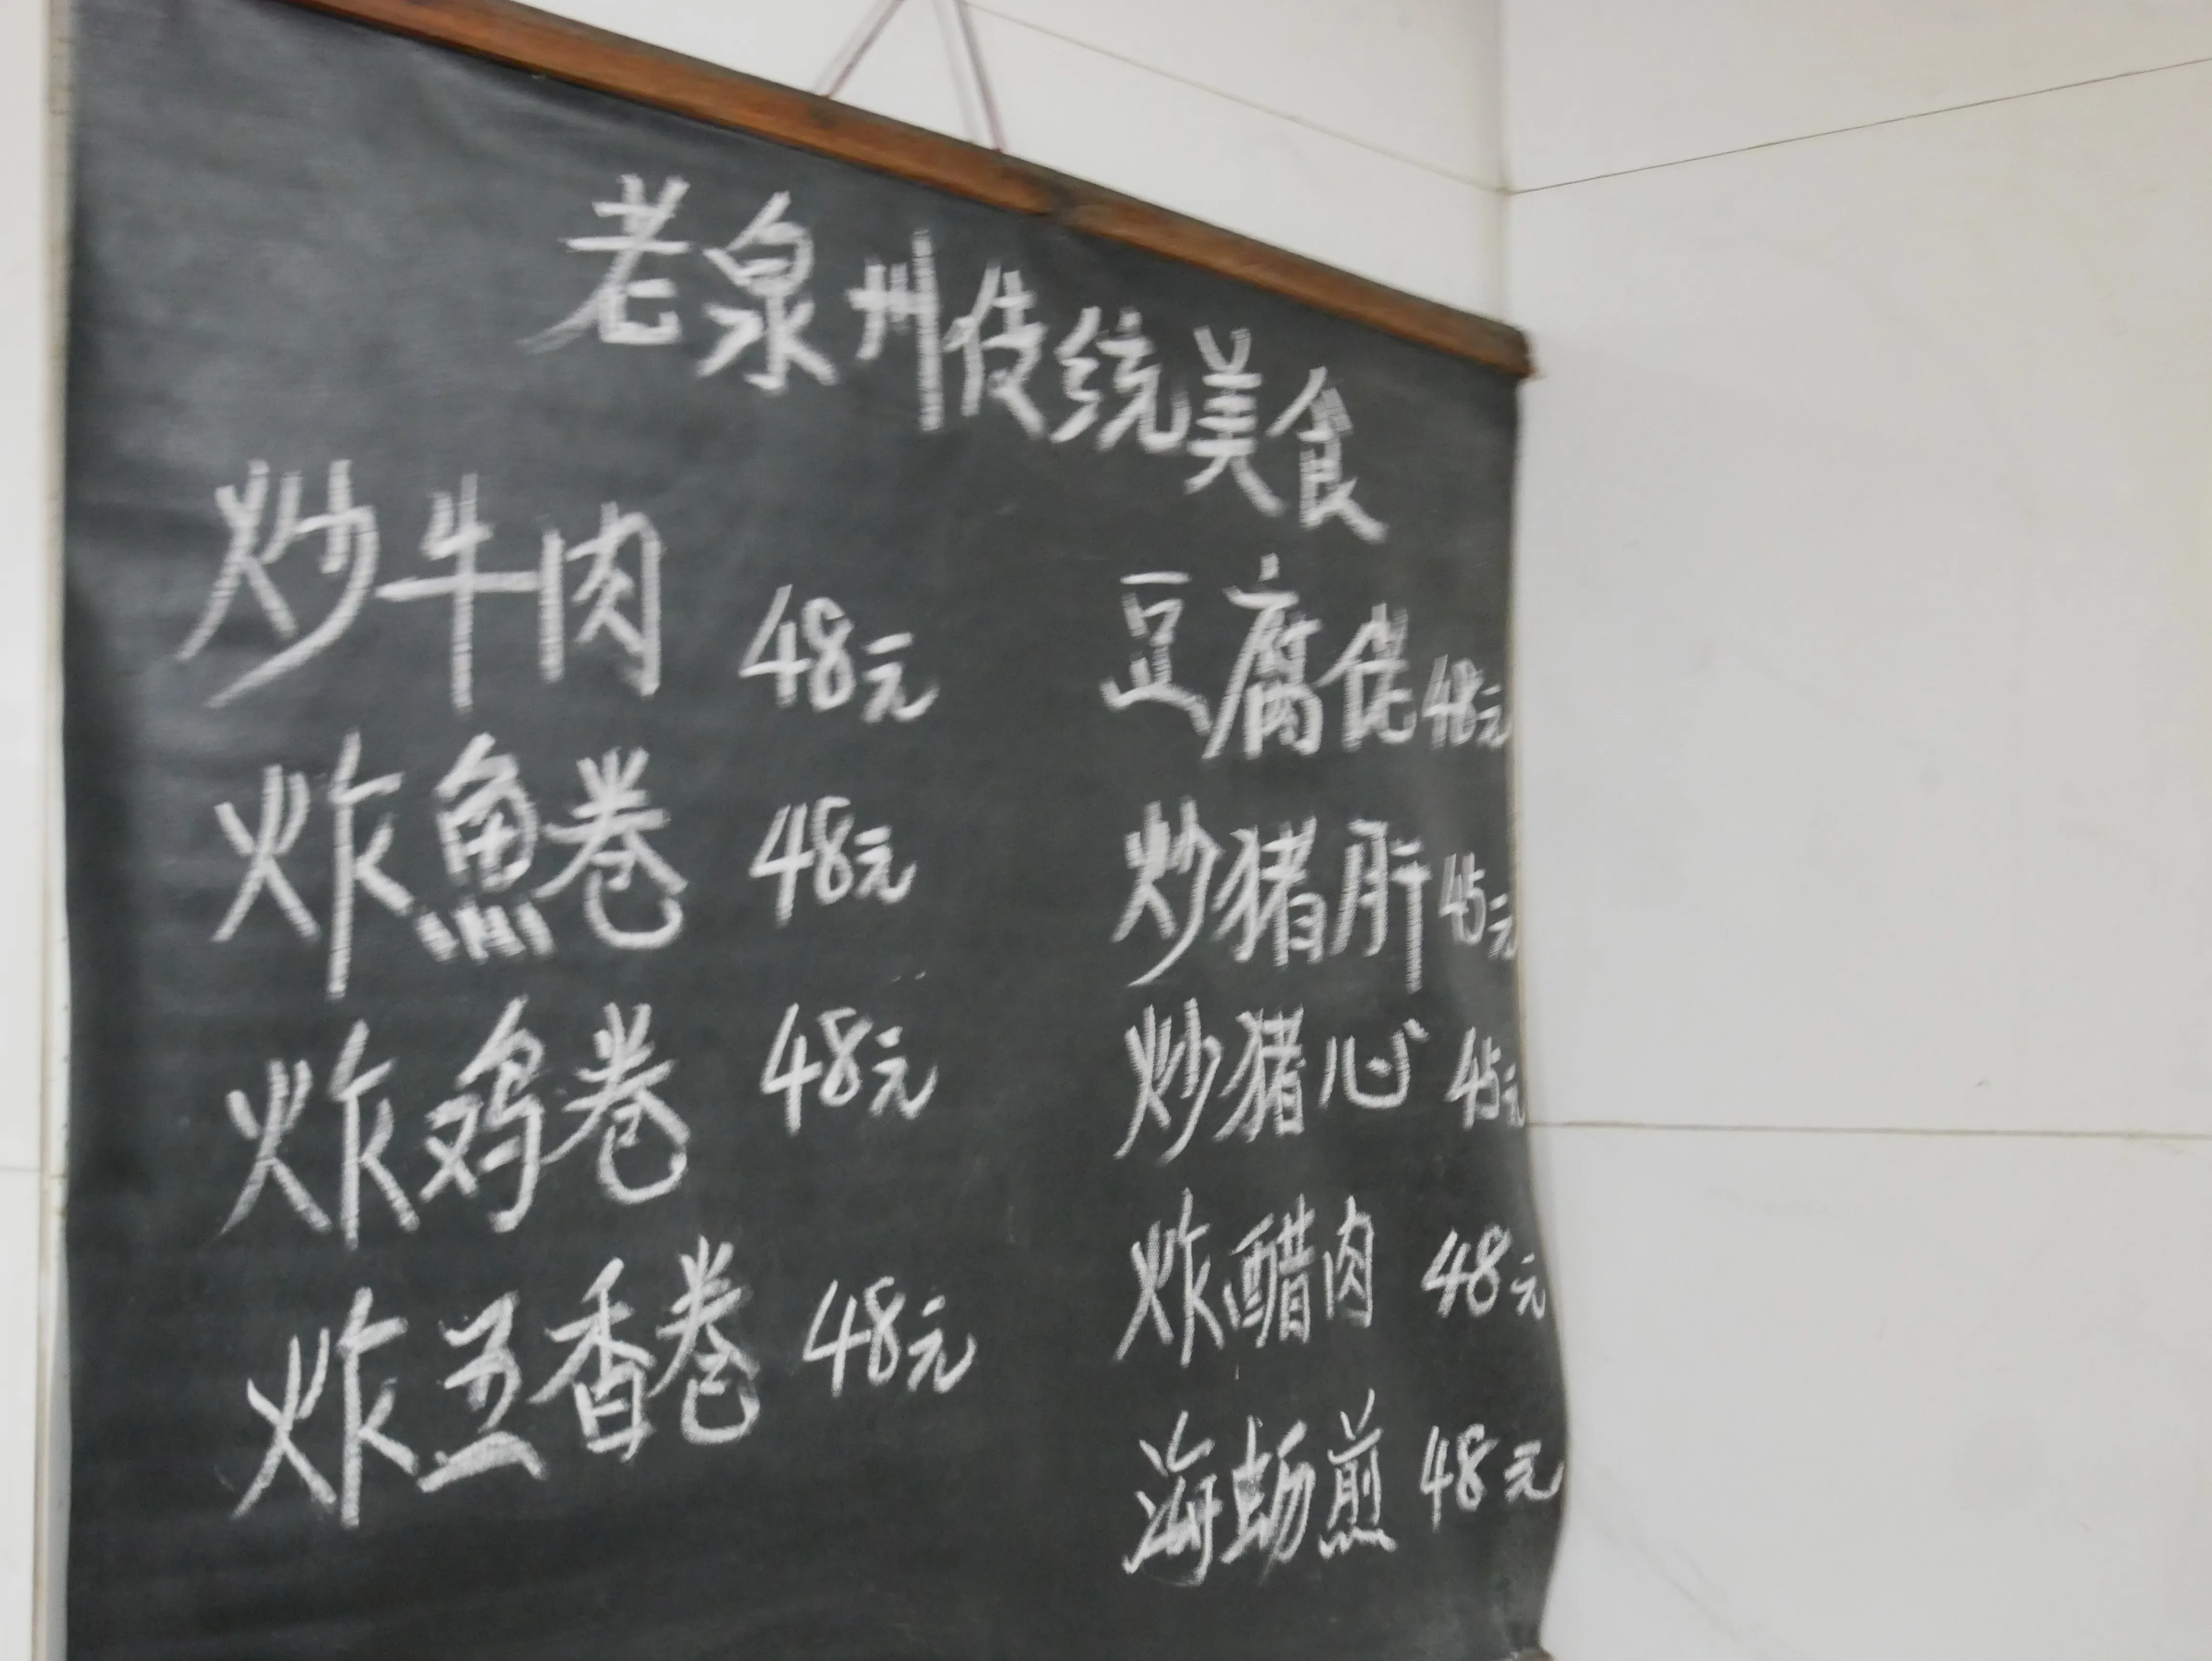 老泉州传统美食
炒牛肉 48元
炸魚卷 48元
炸鸡卷 48元
炸五香卷 48元
豆腐 48元
炒猪肝 45元
炒猪心 45元
炸醋肉 48元
海蛎煎 48元